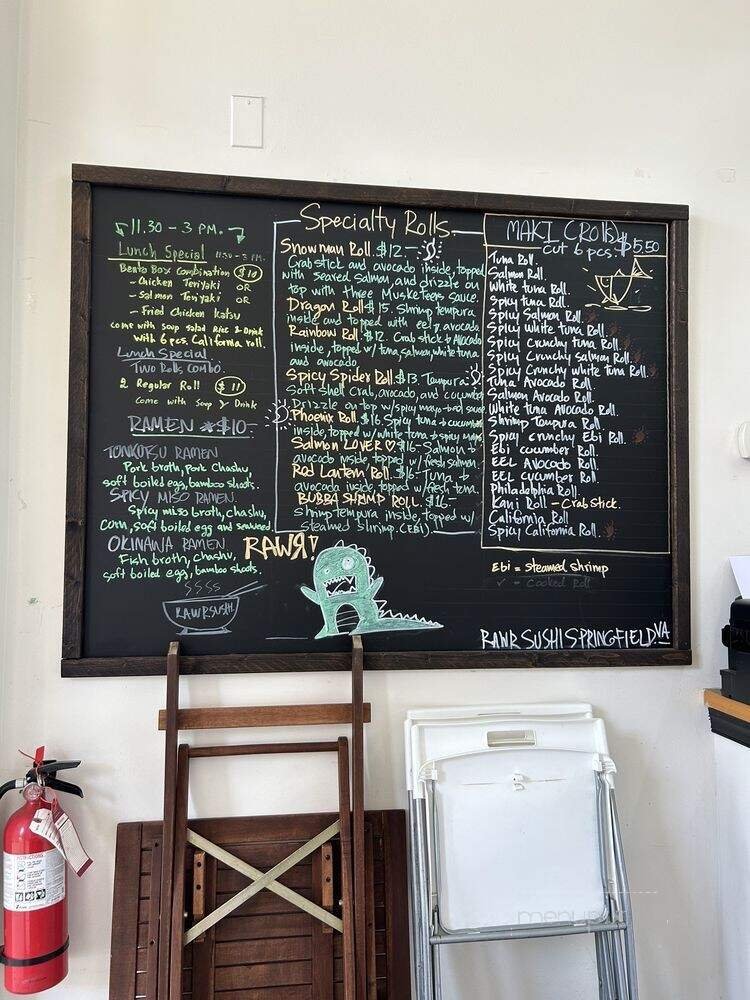 11.30 - 3 PM.
Lunch Special 11:30 - 3 PM.
Bento Box Combination $10
- Chicken Teriyaki OR
- Salmon Teriyaki OR
- Fried Chicken Katsu
come with soup salad Rice & Drink
with 6 pcs. California roll.
Lunch Special
Two Rolls Combo.
2 Regular Roll $11
Come with soup & Drink
RAMEN $10-
TONKOTSU RAMEN
Pork broth, pork chashu,
soft boiled egg, bamboo shoots.
SPICY MISO RAMEN.
Spicy miso broth, chashu,
corn, soft boiled egg and seaweed
OKINAWA RAMEN
Fish broth, chashu,
soft boiled egg, bamboo shoots.
RAWR SUSHI
RAWR!
Specialty Rolls
Snowman Roll. $12.-
Crab stick and avocado inside, topped
with seared salmon, and drizzle on
top with three Musketeers sauce.
Dragon Roll $15. Shrimp tempura
inside and topped with eel & avocado.
Rainbow Roll. $12. Crab stick & Avocado
inside, topped w/ tuna, salmon, white tuna
and avocado
Spicy Spider Roll. $13. Tempura
Soft shell crab, avocado, and cucumber
Drizzle on top w/ spicy mayo
Phoenix Roll. $16. Spicy tuna & cucumber
inside, topped w/ white tuna & spicy mayo
Salmon LOVER $16- Salmon &
avocado inside topped w/ fresh salmon.
Red Lantern Roll. $16- Tuna &
avocado inside, topped w/ fresh tuna.
BUBBA SHRIMP ROLL. $16-
shrimp tempura inside, topped w/
steamed shrimp. (EBI).
MAKI (Rolls)
Cut 6 pcs. $5.50
Tuna Roll.
Salmon Roll.
White tuna Roll.
Spicy tuna Roll.
Spicy Salmon Roll.
Spicy White tuna Roll.
Spicy Crunchy tuna Roll.
Spicy Crunchy Salmon Roll.
Spicy Crunchy White tuna Roll.
Tuna Avocado Roll.
Salmon Avocado Roll.
White tuna Avocado Roll.
Shrimp Tempura Roll
Spicy crunchy Ebi Roll.
Ebi cucumber Roll.
EEL Avocado Roll.
EEL cucumber Roll.
Philadelphia Roll.
Kani Roll - Crab Stick.
California Roll
Spicy California Roll.
Ebi = steamed shrimp
✓ = Cooked Roll
RAWR SUSHI SPRINGFIELD.VA